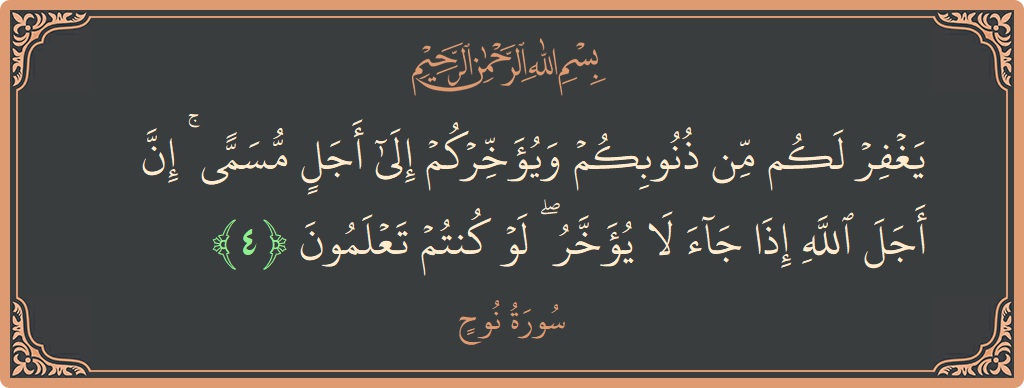 بِسْمِ اللهِ الرَّحْمٰنِ الرَّحِيْمِ
يَغۡفِرۡ لَكُم مِّن ذُنُوبِكُمۡ وَيُؤَخِّرۡكُمۡ إِلَىٰٓ أَجَلٍ مُّسَمًّىۚ إِنَّ
أَجَلَ ٱللَّهِ إِذَا جَآءَ لَا يُؤَخَّرُۖ لَوۡ كُنتُمۡ تَعۡلَمُونَ ﴿٤﴾
سُورَةُ نُوحٍ